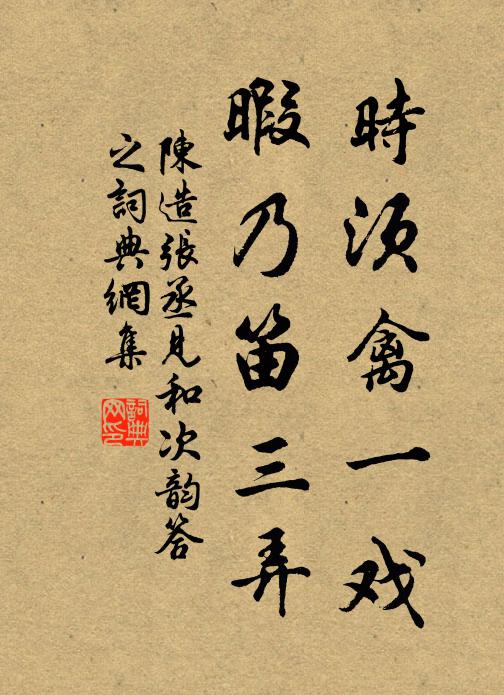 時须禽一戏
暇乃笛三弄
陳造張丞見和次韵答
之詞典網集
詞典
网印